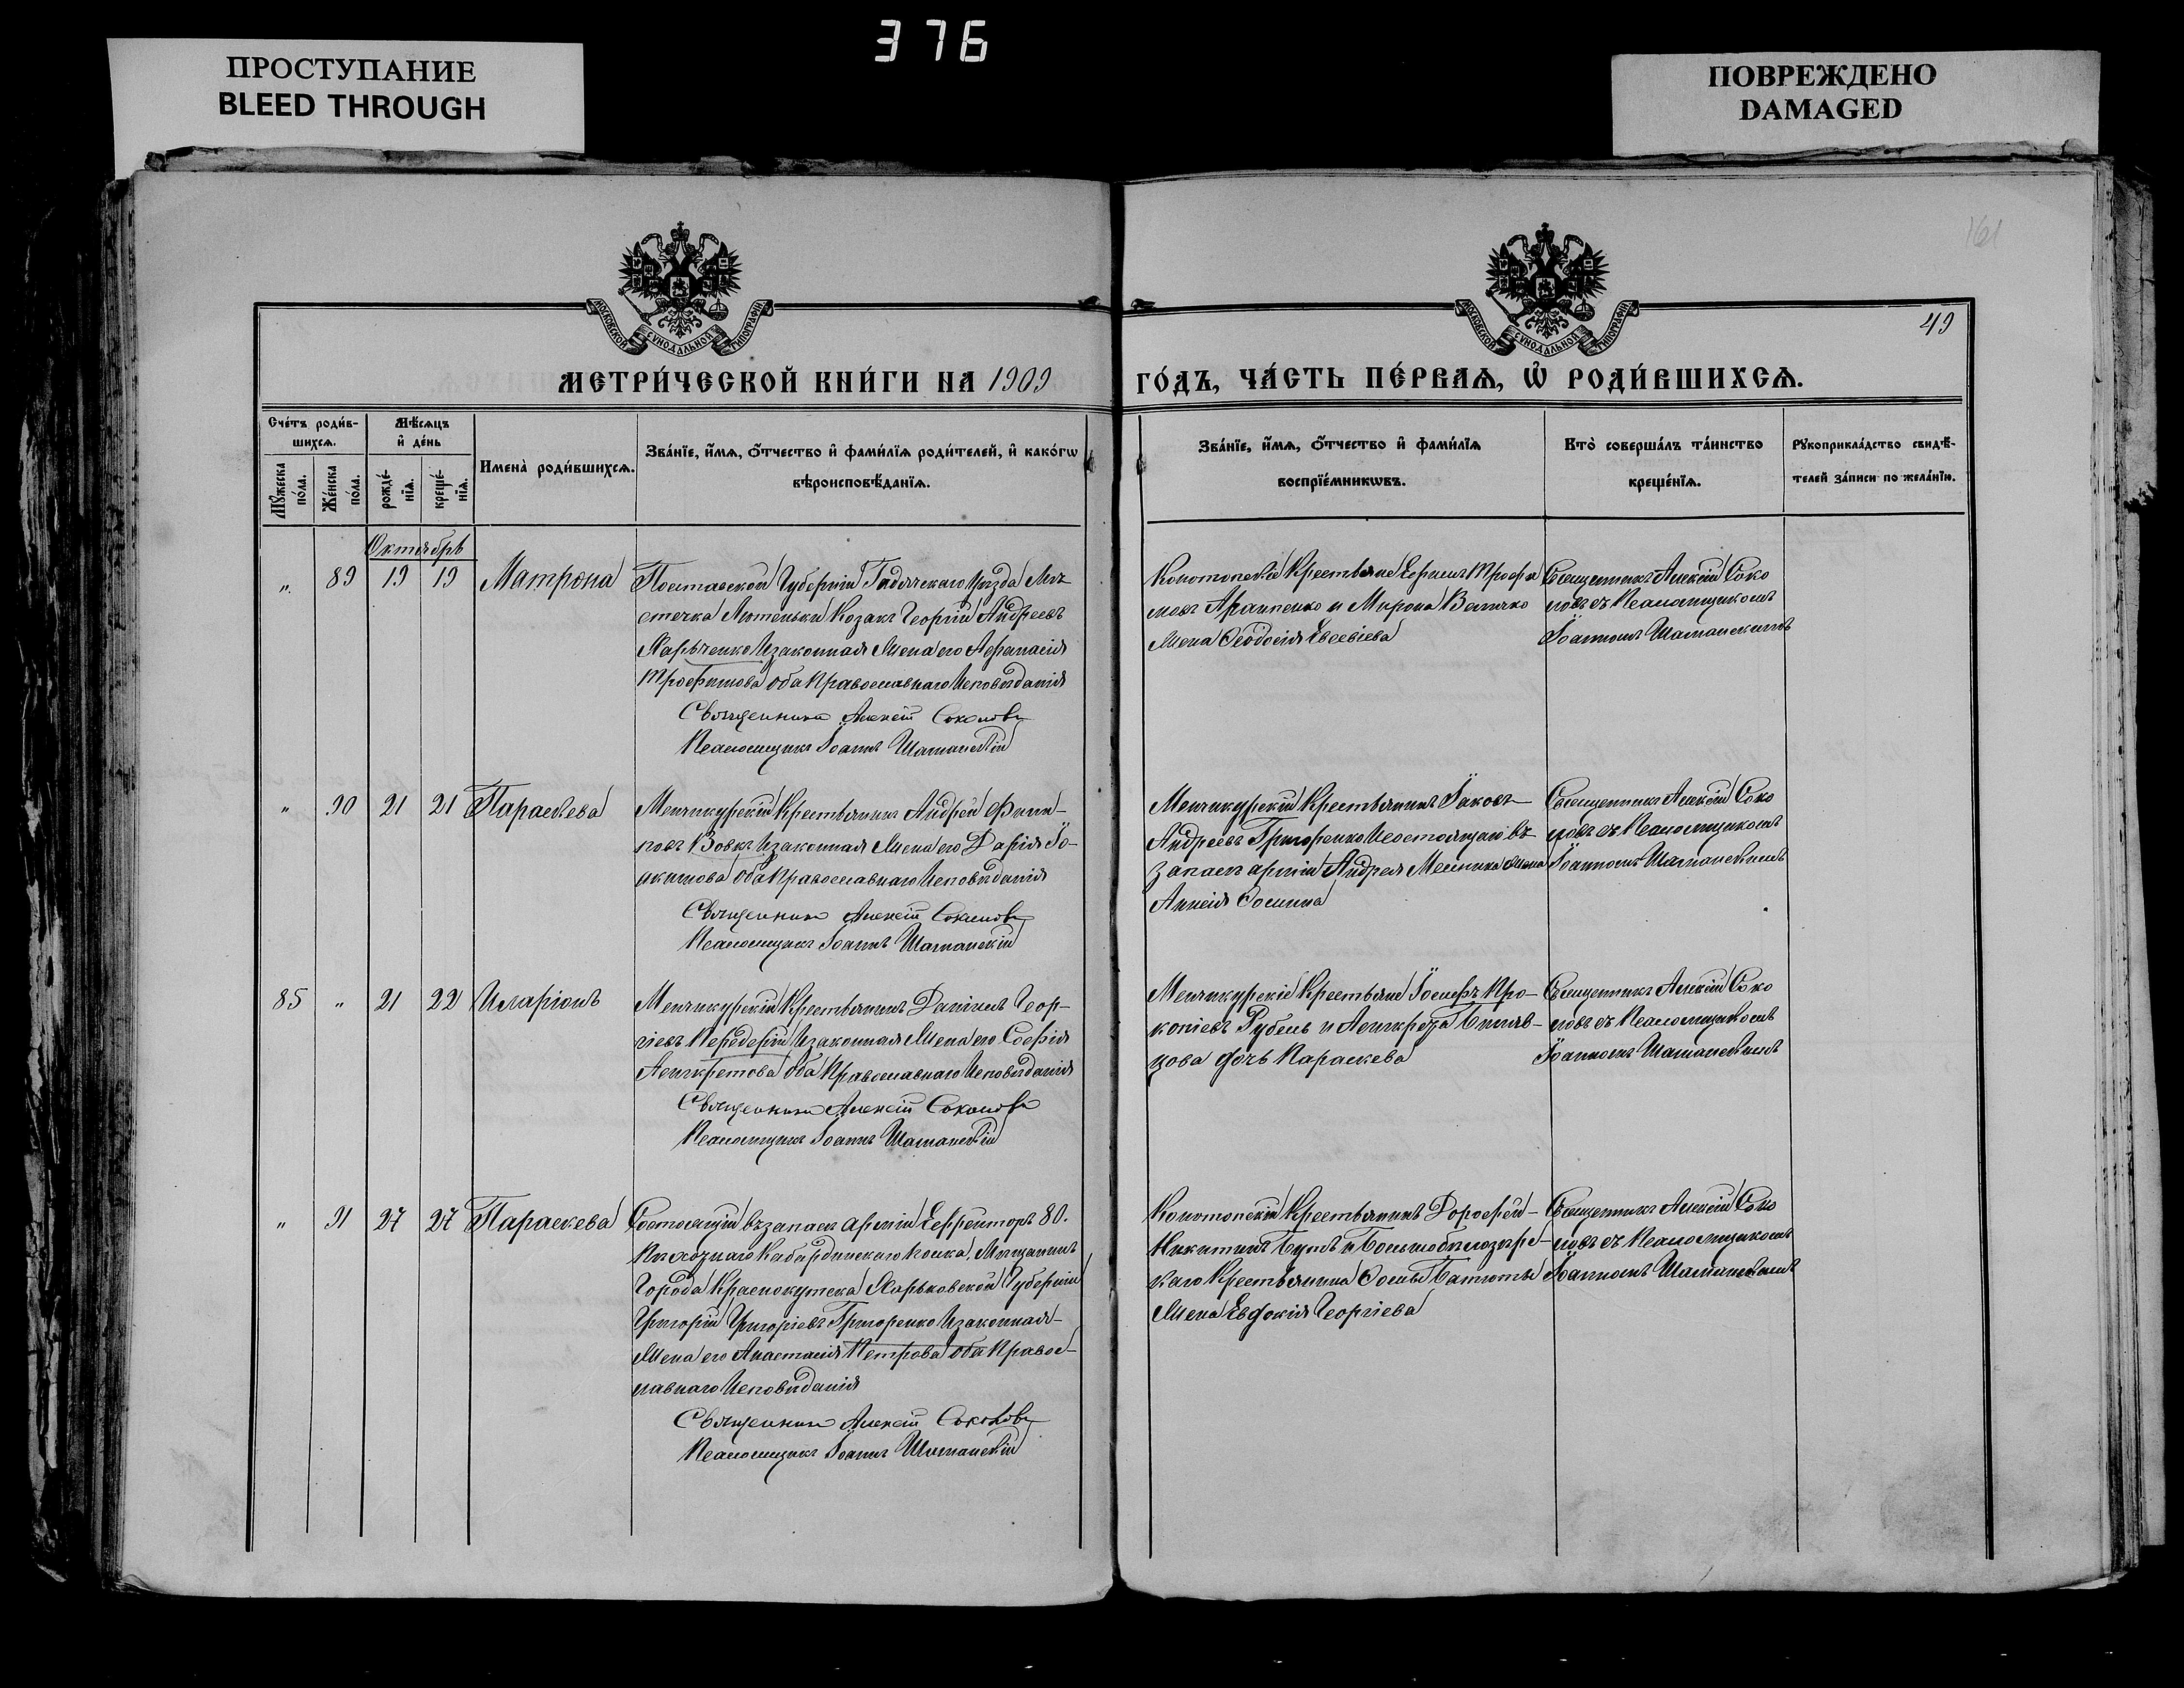 376
ПРОСТУПАНИЕ
BLEED THROUGH
ПОВРЕЖДЕНО
DAMAGED
161
МОСКОВСКОЙ СѴНОДАЛЬНОЙ ТИПОГРАФІИ
МОСКОВСКОЙ СѴНОДАЛЬНОЙ ТИПОГРАФІИ
49
МЕТРИ́ЧЕСКОЙ КНИ́ГИ НА 1909
ГО́ДЪ, ЧА́СТЬ ПЕ́РВАѦ, Ѡ РОДИ́ВШИХСѦ.
Сче́тъ роди́в-
шихсѧ.
Мꙋ́жеска по́ла.
Же́нска по́ла.
Мѣ́сѧцъ
и҆ де́нь
рожде́-
нїѧ.
креще́-
нїѧ.
Имена̀ роди́вшихсѧ.
Зва́нїе, и҆́мѧ, ѻ҆́тчество и҆ фами́лїѧ роди́телей, и҆ како́гѡ
вѣроисповѣ́данїѧ.
Зва́нїе, и҆́мѧ, ѻ҆́тчество и҆ фами́лїѧ
воспрїе́мникѡвъ.
Кто̀ соверша́лъ та́инство
креще́нїѧ.
Рꙋкоприкла́дство свидѣ́-
телей за́писи по жела́нїю.
Октябрь
„ 89 19 19 Матрона
Полтавской Губерніи Гадячскаго Уѣзда Мѣ
стечка Лютеньки Козакъ Георгій Андреевъ
Харьченко и законная Жена его Афанасія
Трофимова оба Православнаго Исповѣданія
Священникъ Алексій Соколовъ
Псаломщикъ Іоаннъ Шаманскій
Конотопскіе Крестьяне Трофи
мовъ и Мирона Величко
Жена Ѳеодосія Евсевіева
Священникъ Алексій Соко
ловъ съ Псаломщикомъ
Іоанномъ Шаманскимъ
„ 90 21 21 Параскева
Менчикурскій Крестьянинъ Андрей Филип-
повъ Вовкъ и законная Жена его Дарія Іо-
акимова оба Православнаго Исповѣданія
Священникъ Алексій Соколовъ
Псаломщикъ Іоаннъ Шаманскій
Менчикурскій Крестьянинъ Іаковъ
Андреевъ Григоренко и состоящаго въ
запасѣ арміи Андрея Жена
Анисія
Священникъ Алексій Соко
ловъ съ Псаломщикомъ
Іоанномъ Шаманскимъ
85 „ 21 22 Иларіонъ
Менчикурскій Крестьянинъ Даніилъ Геор-
гіевъ Передерій и законная Жена его Софія
Аситкретова оба Православнаго Исповѣданія
Священникъ Алексій Соколовъ
Псаломщикъ Іоаннъ Шаманскій
Менчикурскіе Крестьяне Іосифъ Про-
копіевъ Рубель и
дочь Параскева
Священникъ Алексій Соко
ловъ съ Псаломщикомъ
Іоанномъ Шаманскимъ
„ 91 27 27 Параскева
Состоящій въ запасѣ арміи Ефрейторъ 80.
Пѣхотнаго Кабардинскаго полка, Мѣщанинъ
Города Краснокутска Харьковской Губерніи
Григорій Григоріевъ Григоренко и законная
Жена его Анастасія Петрова оба Правос-
лавнаго Исповѣданія
Священникъ Алексій Соколовъ
Псаломщикъ Іоаннъ Шаманскій
Конотопскій Крестьянинъ Дорофей
Никитинъ и Большобѣлозерс-
каго Крестьянина
Жена Евдокія Георгіева
Священникъ Алексій Соко
ловъ съ Псаломщикомъ
Іоанномъ Шаманскимъ